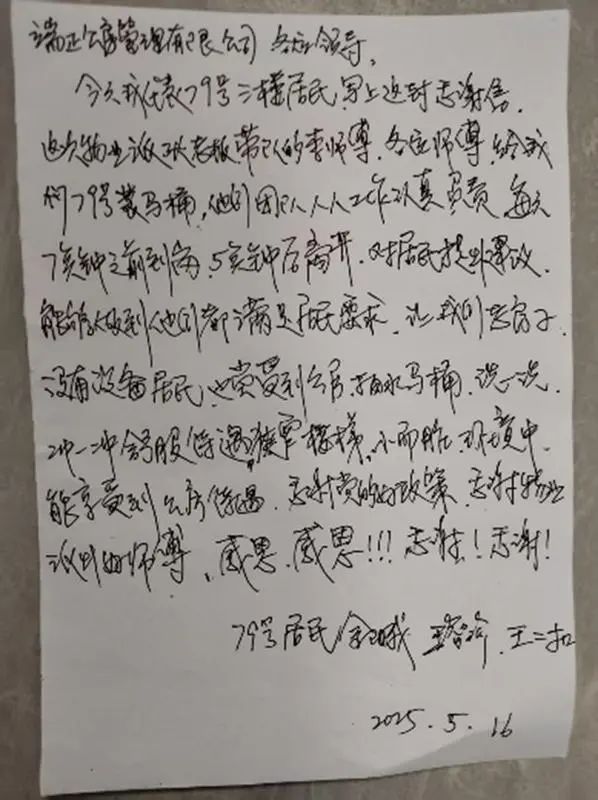 端正公房管理有限公司 各位领导,
今天我代表79号三楼居民,写上这封感谢信.
这次物业派工老板带队的李师傅,各位师傅,给我
们79号装马桶,他们团队人人工作认真负责,每天
7点钟之前到岗,5点钟后离开.对居民提出建议,
能够做到他们都满足居民要求,让我们老房子
没有设备居民也享受到公房抽水马桶,洗一洗
冲一冲舒服待遇,小而脏环境中
能享受到公房待遇.感谢党的好政策,感谢物业
派出的师傅,感恩,感恩!!!感谢!感谢!
79号居民 王二扣
2025.5.16